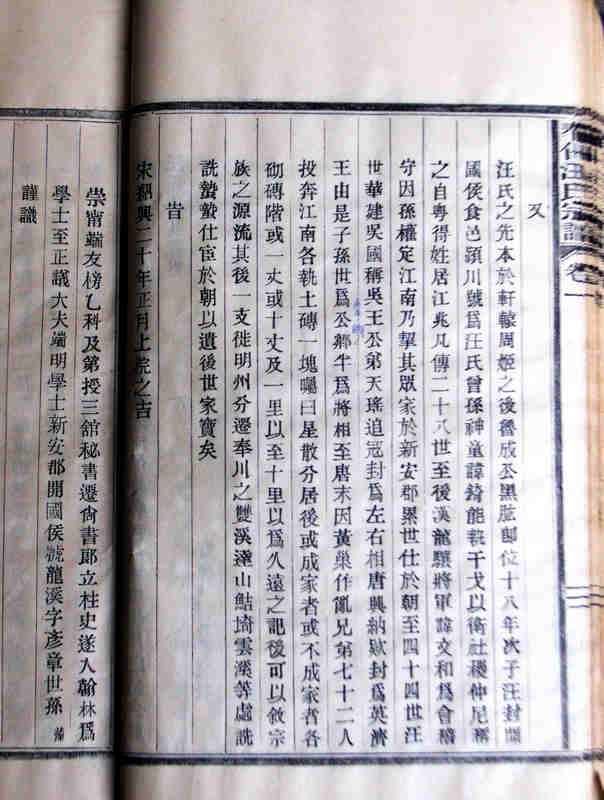 汪氏宗譜 卷一
又
汪氏之先本於軒轅周姬之後魯成公黑肱卽位十八年次子汪封
國侯食邑潁川號爲汪氏曾孫神童諱錡能執干戈以衛社稷仲尼稱
之自粤得姓居江兆凡傳二十八世至後漢龍驤將軍諱文和爲會稽
守因孫權定江南乃挈其眾家於新安郡累世仕於朝至四十四世汪
世華建吳國稱吳王公弟天瑤追冠封爲左右相唐興納欵封爲英濟
王由是子孫世爲公卿半爲將相至唐末因黃巢作亂兄第七十二人
投奔江南各執土磚一塊囑曰星散分居後或成家者或不成家者各
砌磚階或一丈或十丈及一里以至十里以爲久遠之記後可以敘宗
族之源流其後一支徙明州分遷奉川之雙溪達山鮚埼雲溪等處詵
詵蟄蟄仕宦於朝以遺後世家寶矣
旹
宋紹興二十年正月上院之吉
崇甯端友榜乙科及第授三舘秘書遷尙書郎立柱史遂入翰林爲
學士至正議大夫端明學士新安郡開國侯號龍溪字彥章世孫
謹識